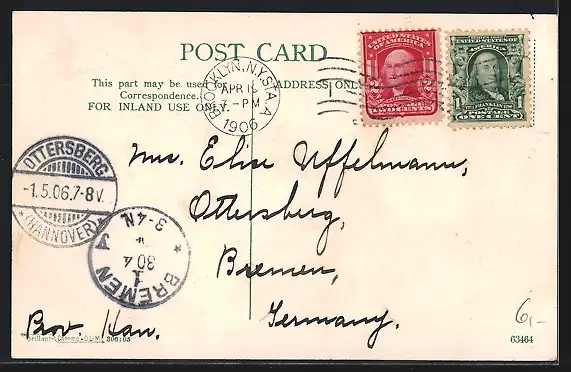 POST CARD
This part may be used for
Correspondence.
ADDRESS ONLY
FOR INLAND USE ONLY.
BROOKLYN, N.Y. STA. A
APR 1
-PM
1906
UNITED STATES OF AMERICA
POSTAGE
2 TWO CENTS 2
UNITED STATES OF AMERICA
FRANKLIN
POSTAGE
1 ONE CENT
OTTERSBERG
-1.5.06.7-8V.
(HANNOVER)
BREMEN
1
30 4
3-4N.
Mrs. Elise Uffelmann,
Ottersberg,
Bremen,
Germany.
Prov. Han.
6,-
63464